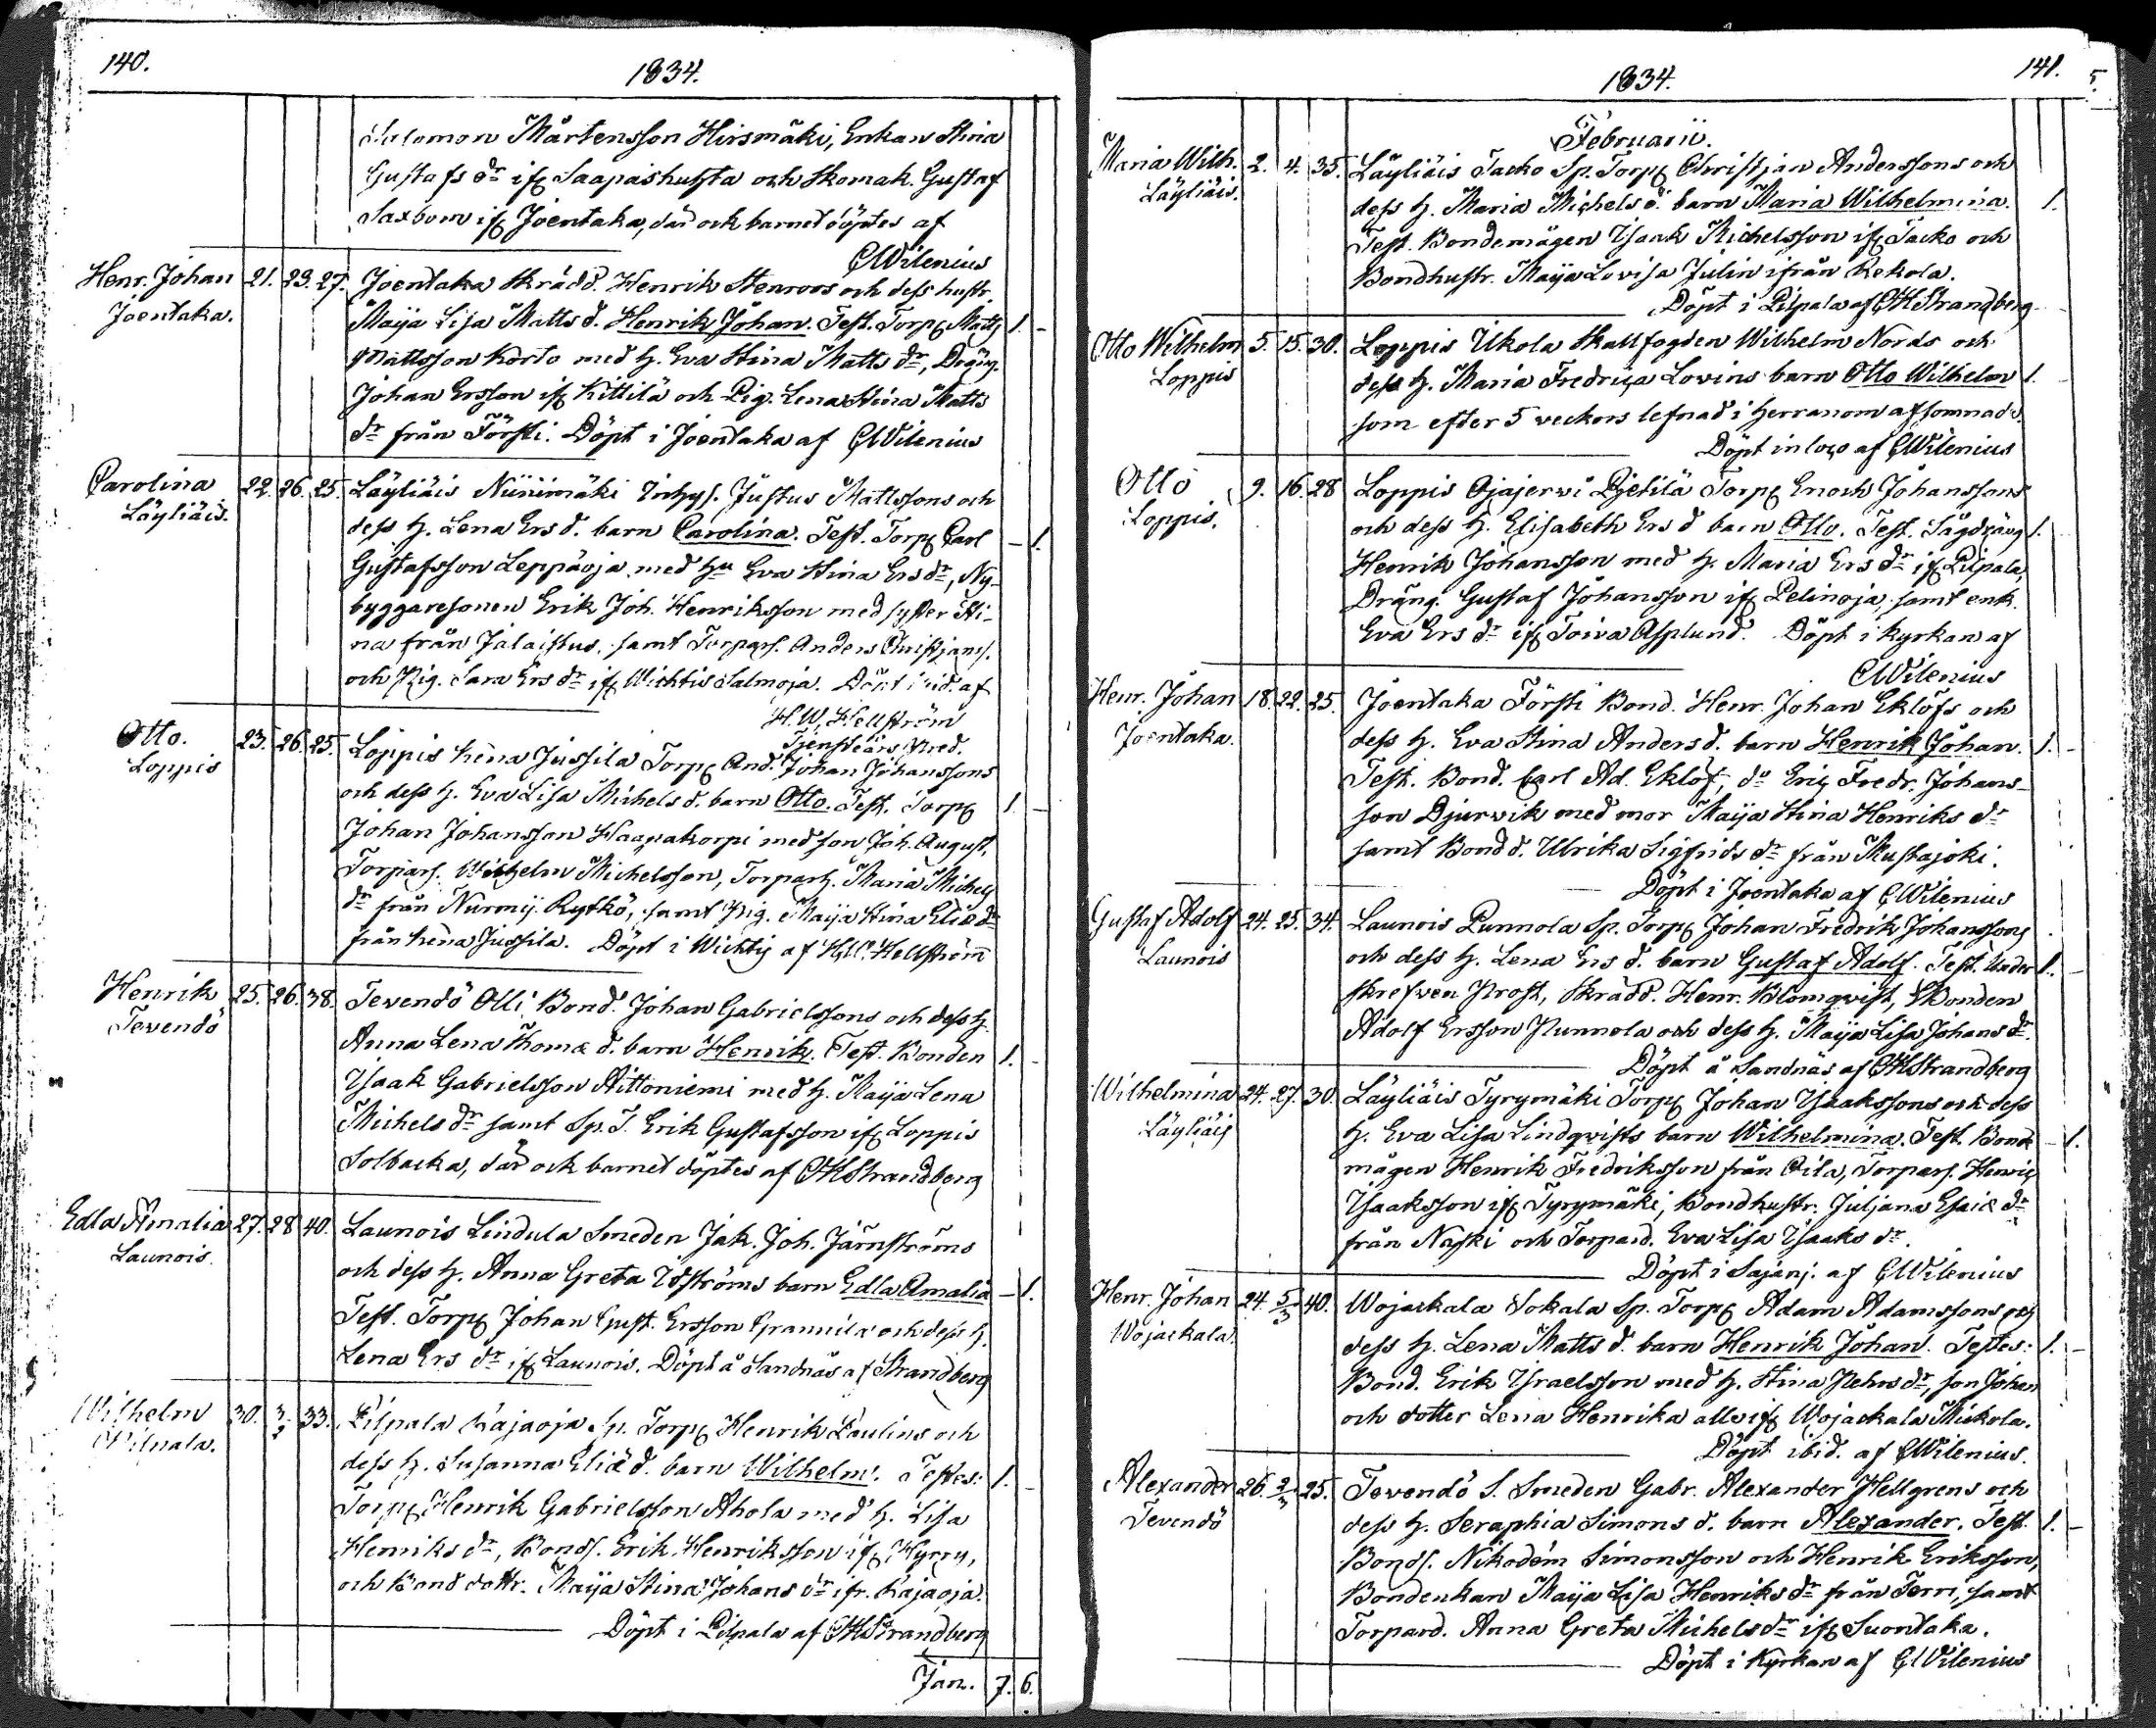 140.
1834.
Salomon Mårtensson Hirsmäki, Enkan Stina
Gustafs dr ifr Saapashuhta och Skomak. Gustaf
Saxbom ifr Joentaka, där och barnet döptes af
CWilenius
Henr. Johan 21. 23. 27. Joentaka Skrädd. Henrik Stenroos och dess hustr.
Joentaka. Maija Lisa Matts d. Henrik Johan. Test. Torp Matts 1. -
Mattsson Korto med h. Eva Stina Matts dr, Dräng.
Johan Ersson ifr Kittilä och Pig. Lena Stina Matts
dr från Försti. Döpt i Joentaka af CWilenius
Carolina 22. 26. 25. Läyliäis Niinimäki Inhys. Justus Mattssons och
Läyliäis. dess h. Lena Ers d. barn Carolina. Test. Torp Carl - 1.
Gustafsson Leppäoja med hu Eva Stina Ers dr, Ny-
byggaresonen Erik Joh. Henriksson med syster Sti-
na från Jalaistus, samt Torpars. Anders Christjans.
och Pig. Sara Ers dr ifr Wichtis Salmoja. Döpt ibid. af
H.W. Hellström
Tjensteårs Pred.
Otto. 23. 26. 25. Loppis Jussila Torp And. Johan Johanssons
Loppis och dess h. Eva Lisa Michels d. barn Otto. Test. Torp 1. -
Johan Johansson Haapakorpi med son Joh. August,
Torpars. Wilhelm Michelsson, Torparh. Maria Michels
dr från Nurmij. Rytkö, samt Pig. Maija Stina Eliæ dr
från Jussila. Döpt i Wichtis af HW. Hellström
Henrik 25. 26. 38. Tevendö Olli Bond. Johan Gabrielssons och dess h.
Tevendö Anna Lena Thomæ d. barn Henrik. Test. Bonden 1. -
Isaak Gabrielsson Aittoniemi med h. Maija Lena
Michels dr samt Sp. T. Erik Gustafsson ifr Loppis
Solbacka, där och barnet döptes af CHStrandberg
Edla Amalia 27. 28 40. Launois Lindula Smeden Jak. Joh. Järnströms
Launois. och dess h. Anna Greta Idströms barn Edla Amalia - 1.
Test. Torp Johan Gust. Ersson Grannila och dess h.
Lena Ers dr ifr Launois. Döpt å Sandnäs af Strandberg
Wilhelm 30. 3/2 33. Pilpala Kajaoja Sp. Torp Henrik Paulins och
Pilpala. dess h. Susanna Eliæ d. barn Wilhelm. Testes: 1. -
Torp Henrik Gabrielsson Ahola med h. Lisa
Henriks dr, Bonds. Erik Henriksson ifr Hyrry,
och Bonddottr. Maija Stina Johans dr ifr. Kajaoja.
Döpt i Pilpala af CHStrandberg
Jan. 7. 6.
1834.
141.
Februarii.
Maria Wilh. 2. 4. 35. Läyliäis Tacko Sp. Torp Christjan Anderssons och
Läyliäis. dess h. Maria Michels d. barn Maria Wilhelmina. 1.
Test. Bondemågen Isaak Michelsson ifr Tacko och
Bondhustr. Maija Lovisa Julin ifrån Rekola.
Döpt i Pilpala af CHStrandberg
Otto Wilhelm 5. 15. 30. Loppis Ukola Skallfogden Wilhelm Nords och
Loppis dess h. Maria Fredrica Lovins barn Otto Wilhelm 1. -
som efter 5 veckors lefnad i Herranom afsomnade.
Döpt in loco af CWilenius
Otto 9. 16. 28 Loppis Ojajerwi Pjetilä Torp Enoch Johanssons
Loppis. och dess h. Elisabeth Ers d barn Otto. Test. Sågdräng 1.
Henrik Johansson med h. Maria Ers dr ifr Pilpala,
Dräng. Gustaf Johansson ifr Pelinoja, samt enk.
Eva Ers dr ifr Toiva Asplund. Döpt i kyrkan af
CWilenius
Henr. Johan 18. 22. 25. Joentaka Försti Bond. Henr. Johan Eklöfs och
Joentaka. dess h. Eva Stina Anders d. barn Henrik Johan. 1. -
Test. Bond. Carl Ad. Eklöf, do Eric Fredr. Johans-
son Djurvik med mor Maija Stina Henriks dr
samt Bondd. Ulrika Sigfrids dr från Mustajoki.
Döpt i Joentaka af CWilenius
Gustaf Adolf 24. 25. 34. Launois Punnola Sp. Torp Johan Fredrik Johanssons
Launois och dess h. Lena Ers d. barn Gustaf Adolf. Test. Under- 1. -
skrefven Prost, Skrädd. Henr. Blomqvist, Bonden
Adolf Ersson Punnola och dess h. Maija Lisa Johans dr.
Döpt å Sandnäs af CHStrandberg
Wilhelmina 24. 27. 30. Läyliäis Tyrymäki Torp Johan Isaakssons och dess
Läyliäis h. Eva Lisa Lindqvists barn Wilhelmina. Test. Bond- - 1.
mågen Henrik Fredriksson från Pila, Torpars. Henric
Isaaksson ifr Tyrymäki, Bondhustr. Juljana Esaiæ dr
från Naski och Torpard. Eva Lisa Isaaks dr.
Döpt i Sajanj. af CWilenius
Henr. Johan 24. 5/3 40. Wojackala Sokala Sp. Torp Adam Adamssons och
Wojackala. dess h. Lena Matts d. barn Henrik Johan. Testes: 1. -
Bond. Erik Israelsson med h. Stina Pehrs dr, son Johan
och dotter Lena Henrika alla ifr Wojackala Mickola.
Döpt ibid. af CWilenius.
Alexander 26. 2/3 25. Tevendö S. Smeden Gabr. Alexander Hellgrens och
Tevendö dess h. Seraphia Simons d. barn Alexander. Test. 1. -
Bonds. Nikodem Simonsson och Henrik Eriksson,
Bondenkan Maija Lisa Henriks dr från Terri, samt
Torpard. Anna Greta Michels dr ifr Suontaka.
Döpt i Kyrkan af CWilenius